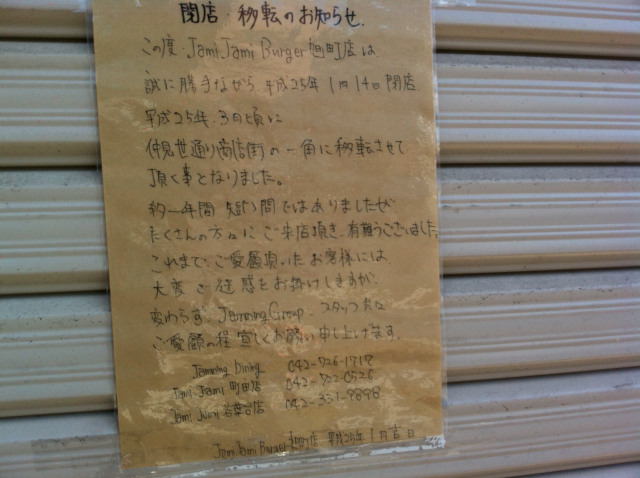 閉店・移転のお知らせ.
この度、Jami Jami Burger 旭町店は
誠に勝手ながら、平成25年1月14日閉店
平成25年、3月頃に
仲見世通り商店街の一角に移転させて
頂く事となりました。
約一年間 短い間ではありましたが
たくさんの方々に ご来店頂き、有難うございました。
これまで、ご愛顧頂いたお客様には
大変ご迷惑をお掛けしますが、
変わらず Jamming Group スタッフ共々
ご愛顧の程 宜しくお願い申し上げます。
Jamming Dining 042-726-1717
Jami Jami 町田店 042-722-0526
Jami Jami 若葉台店 042-331-9898
Jami Jami Burger 旭町店 平成25年1月吉日